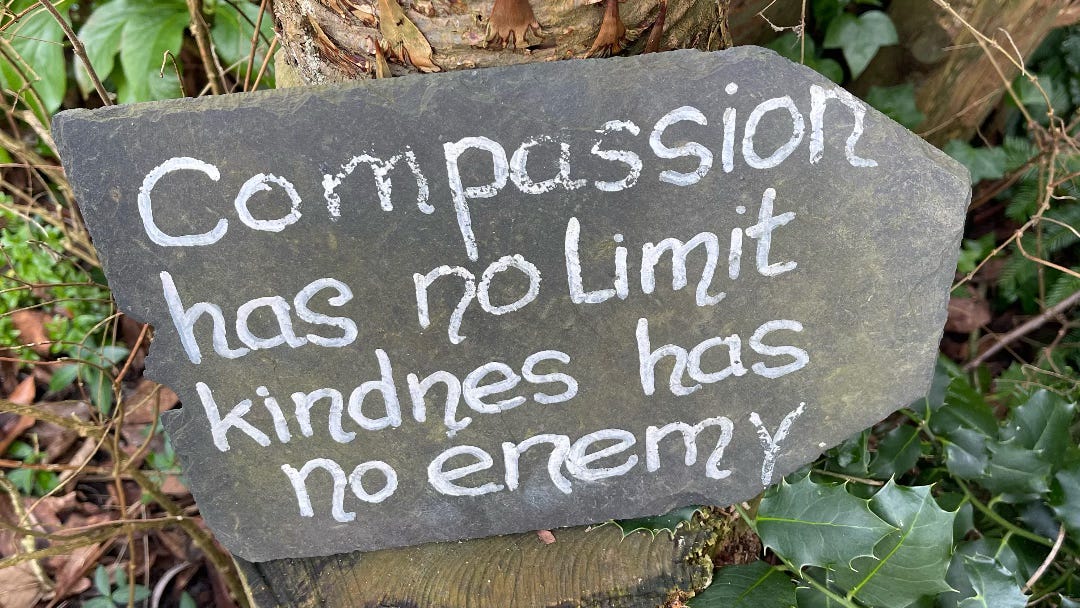 Compassion
has no Limit
kindness has
no enemy